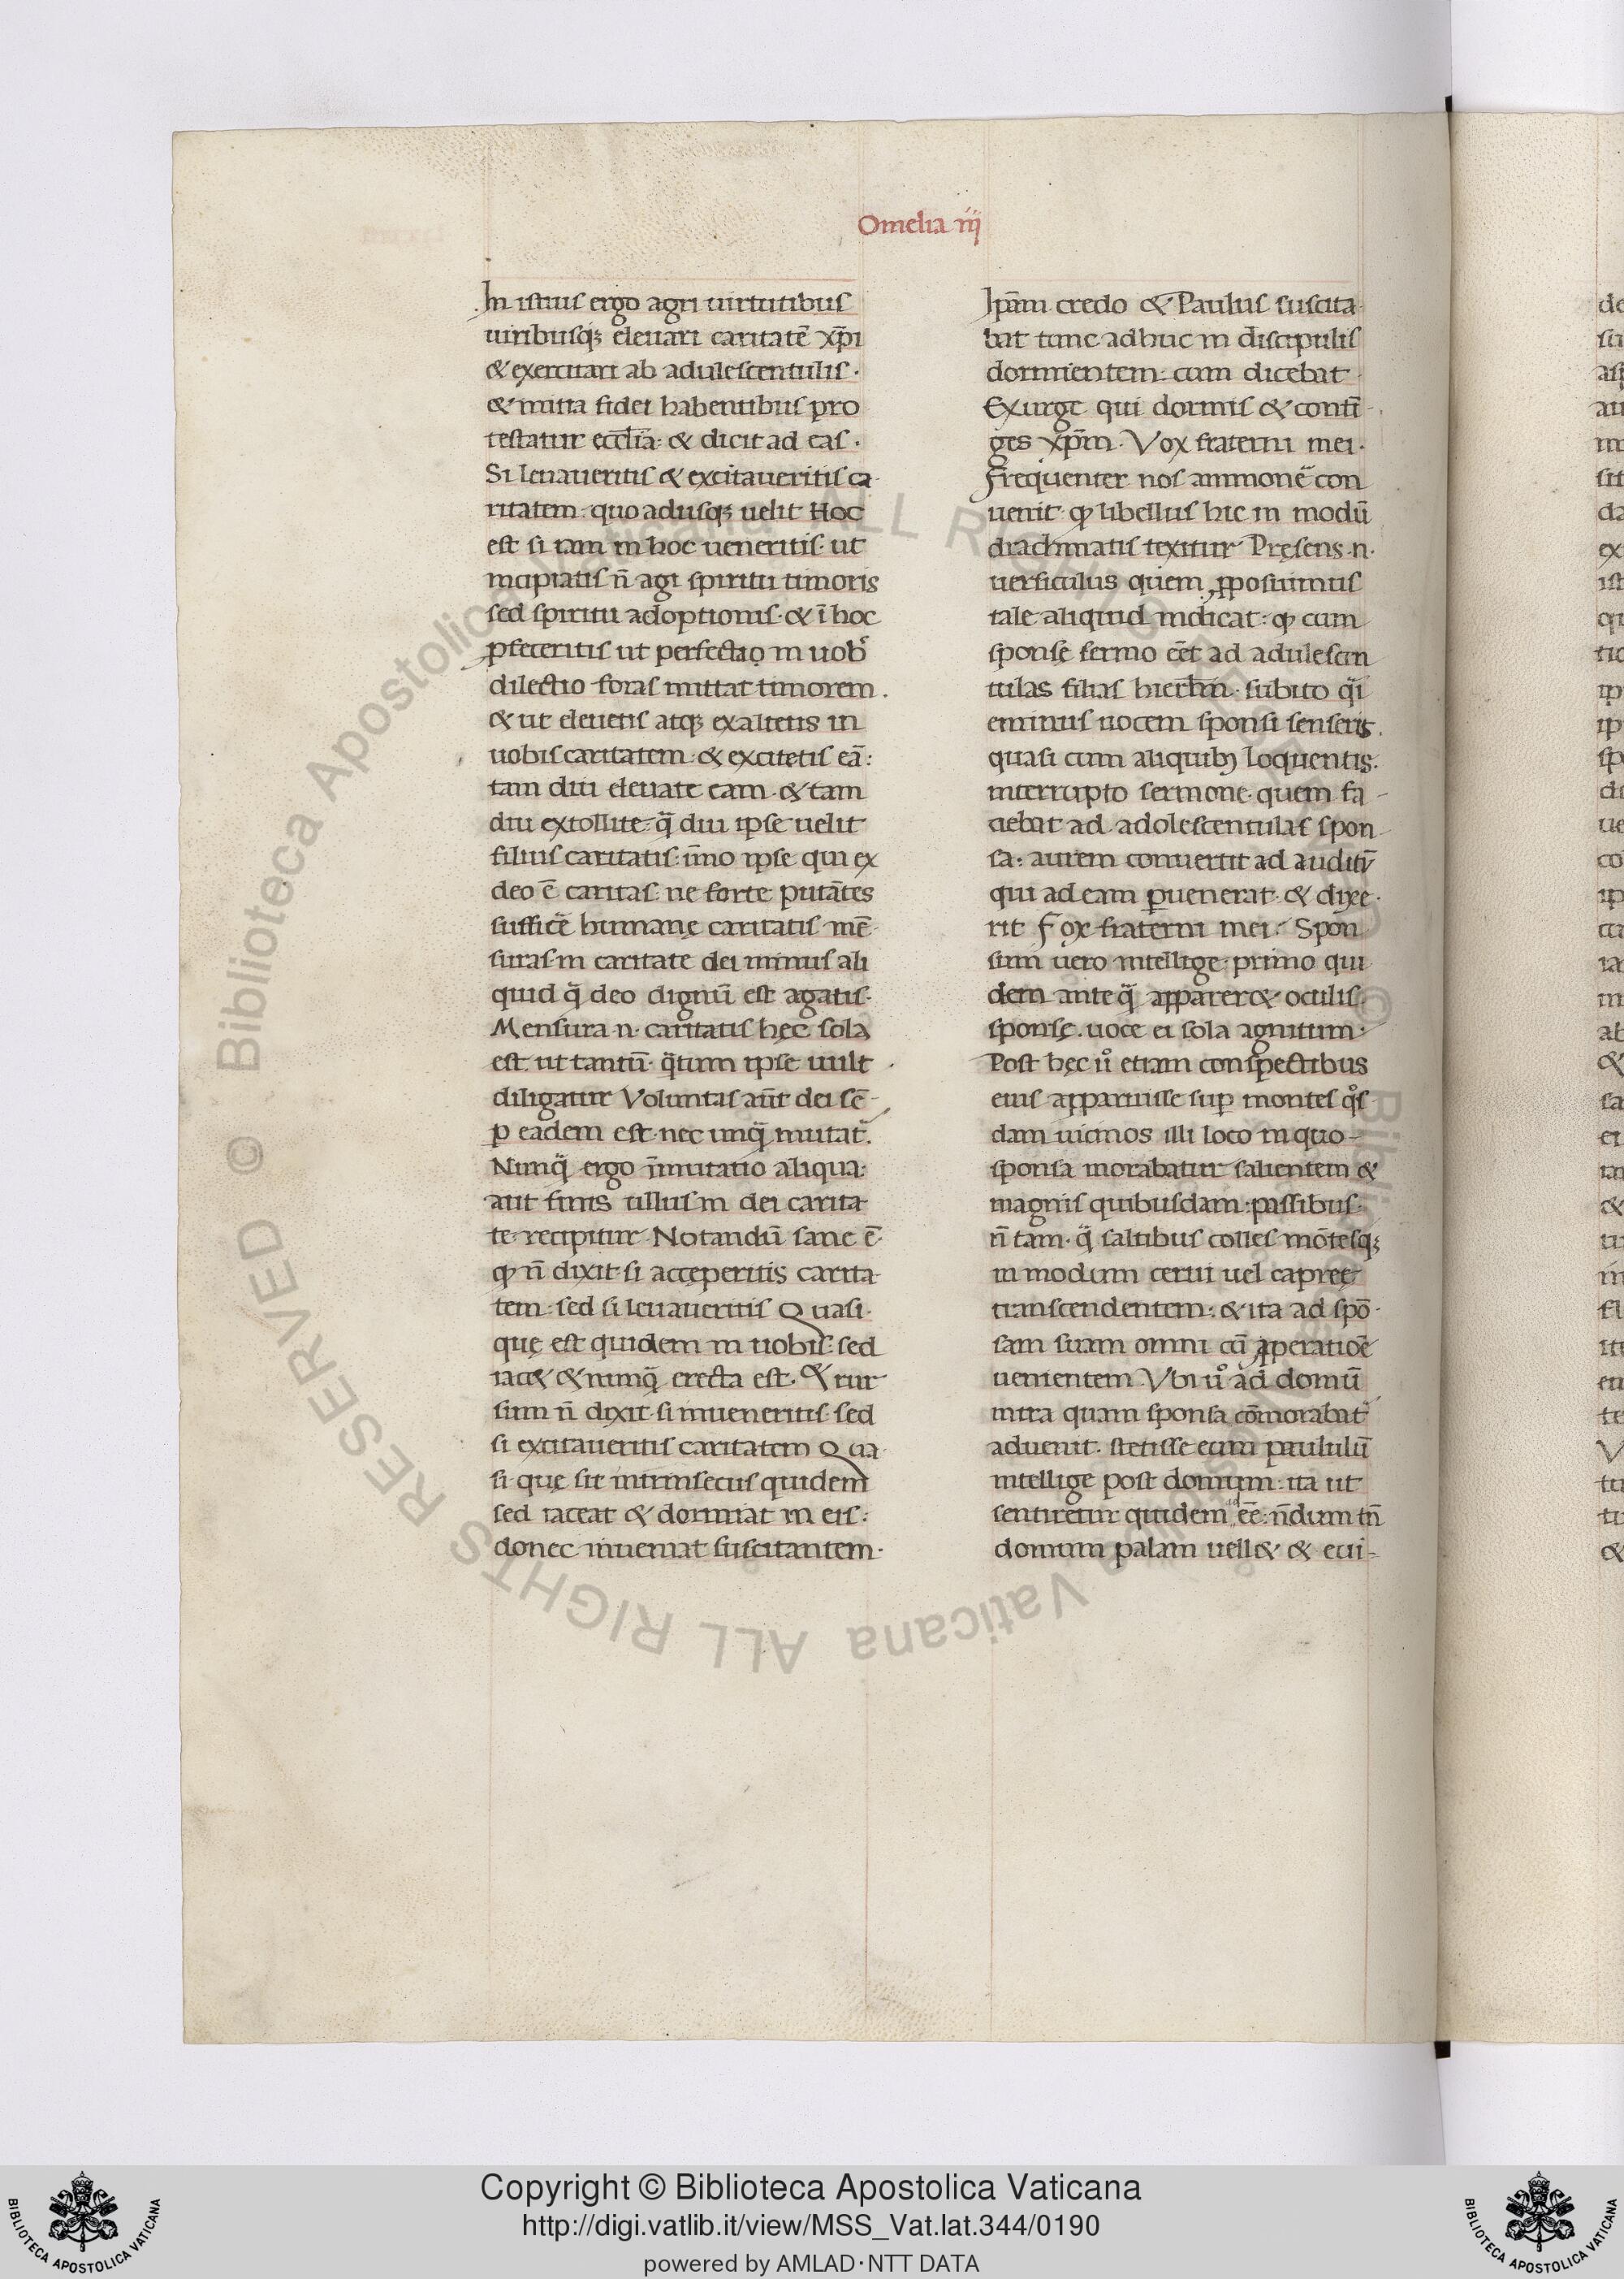 Omelia iij
In istius ergo agri uirtutibus
uiribusq; eleuari caritatē xp̄i
& exercitari ab adulescentulis·
& initia fidei habentibus pro
testatur eccl̄ia: & dicit ad eas·
Si leuaueritis & excitaueritis ca
ritatem: quo adusq; uelit Hoc
est si iam in hoc ueneritis· ut
incipiatis n̄ agi spiritu timoris
sed spiritu adoptionis· & ī hoc
ꝓfeceritis ut perfecta in uob̉
dilectio foras mittat timorem·
& ut eleuetis atq; exaltetis in
uobis caritatem· & excitetis eā:
tam diu eleuate eam· & tam
diu extollite· q̃ diu ipse uelit
filius caritatis: īmo ipse qui ex
deo ē caritas: ne forte putātes
sufficē humanę caritatis mē
suras in caritate dei minus ali
quid q̃ deo dignū est agatis·
Mensura·n· caritatis hęc sola
est· ut tantū· q̃tum ipse uult
diligatur Voluntas aūt dei sē
ꝑ eadem est· nec unq̃ mutat̉.
Nunq̃ ergo īmutatio aliqua:
aut finis ullus in dei carita
te recipitur· Notandū sane ē·
ꝙ n̄ dixit· si acceperitis carita
tem: sed si leuaueritis Quasi·
quę est quidem in uobis: sed
iac& & nunq̃ erecta est· & rur
sum n̄ dixit· si inueneritis· sed
si excitaueritis caritatem Qua
si quę sit intrinsecus quidem
sed iaceat & dormiat in eis:
donec inueniat suscitantem·
Ipam credo & Paulus suscita
bat tunc adhuc in discipulis
dormientem: cum dicebat
Exurge qui dormis & contī
ges xp̄m· Vox fraterni mei·
Frequenter nos ammonē con
uenit· ꝙ libellus hic in modū
drachmatis texitur Pręsens·n·
uersiculus quem ꝓposuimus
tale aliquid indicat: ꝙ cum
sponsę sermo eēt ad adulescen
tulas filias hierl̄m· subito q̃i
eminus uocem sponsi senserit.
quasi cum aliquibꝫ loquentis·
interrupto sermone· quem fa
ciebat ad adolescentulas spon
sa· aurem conuertit ad auditū
qui ad eam ꝑuenerat· & dixe
rit Fox fraterni mei· Spon
sum uero intellige· primo qui
dem ante q̃ apparer& oculis·
sponsę· uoce ei sola agnitum·
Post hęc ů etiam conspectibus
eius apparuisse suꝑ montes q̊s
dam uicinos illi loco in quo
sponsa morabatur salientem &
magnis quibusdam passibus·
n̄ tam· q̃ saltibus colles mōtesq;
in modum cerui uel capreę
transcendentem: & ita ad spō
sam suam omni cū ꝓperatiōe
uenientem Vbi ů ad domū
intra quam sponsa cōmorabat̉
aduenit· stetisse eum paululū
intellige post domum: ita ut
sentiretur quidem eē: n̄dum tn̄
domum palam uell& & eui